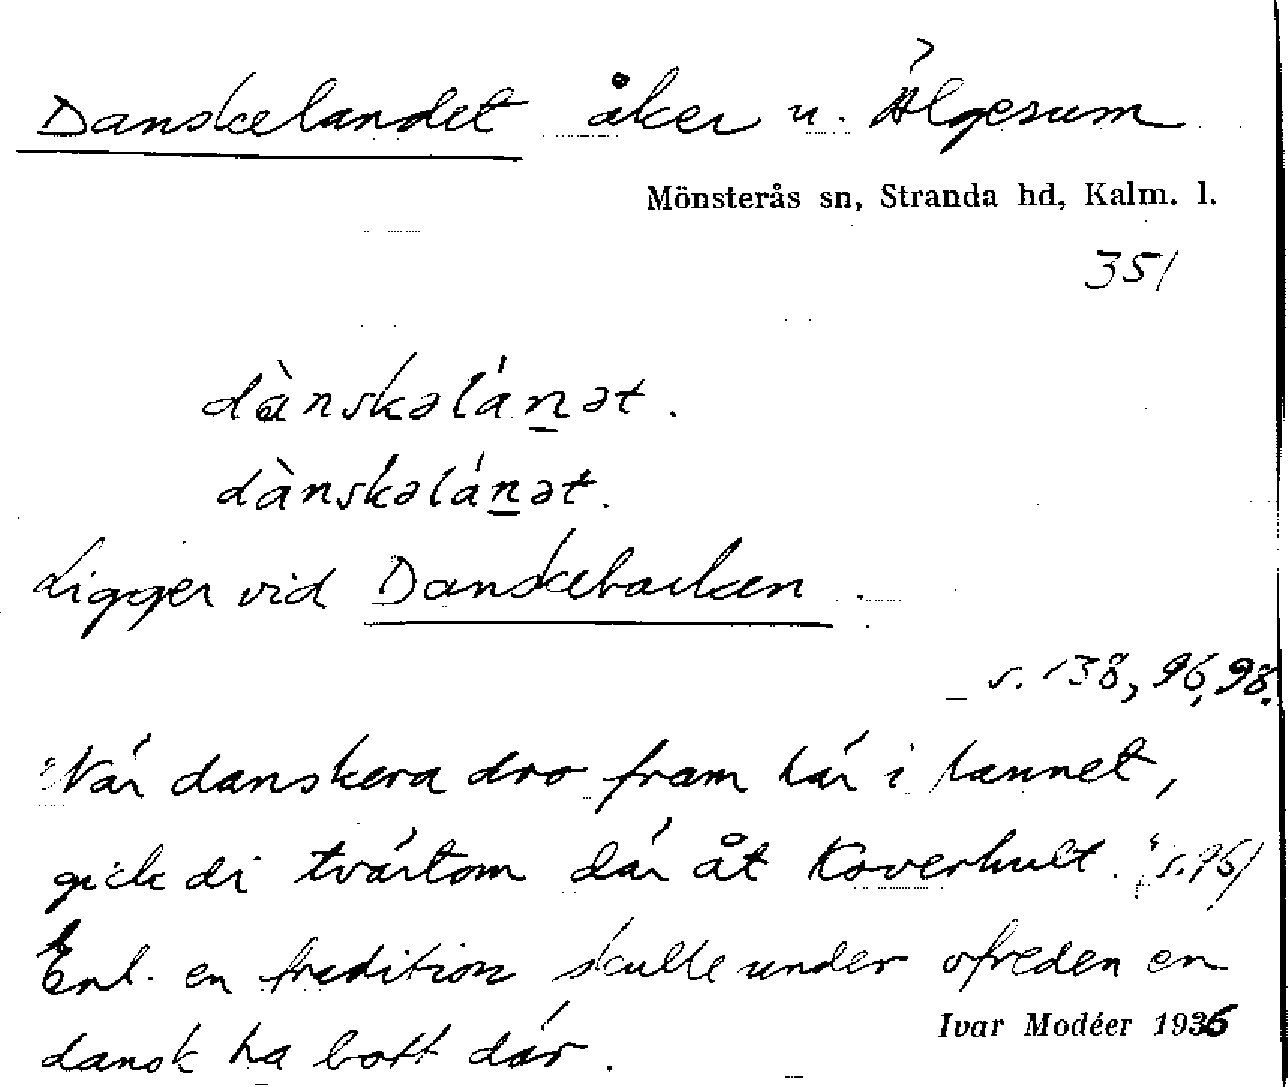 Danskelandet åker u. Älgerum
Mönsterås sn, Stranda hd, Kalm. l.
351
dànskəláṉət.
dànskəláṉət.
Ligger vid Danskebacken.
s. 138, 96, 98.
"När danskera dro fram här i lannet,
gick di tvärtom där åt Koverhult." s. 96)
Enl. en tradition skulle under ofreden en
dansk ha bott där.
Ivar Modéer 1936